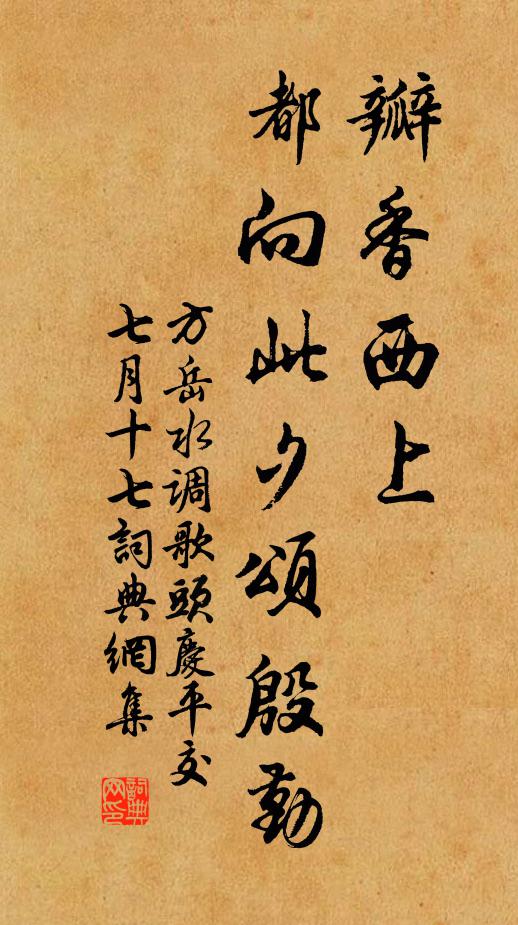 瓣香西上
都向此夕頌殷勤
方岳水调歌頭慶平交
七月十七詞典網集
詞典
网印